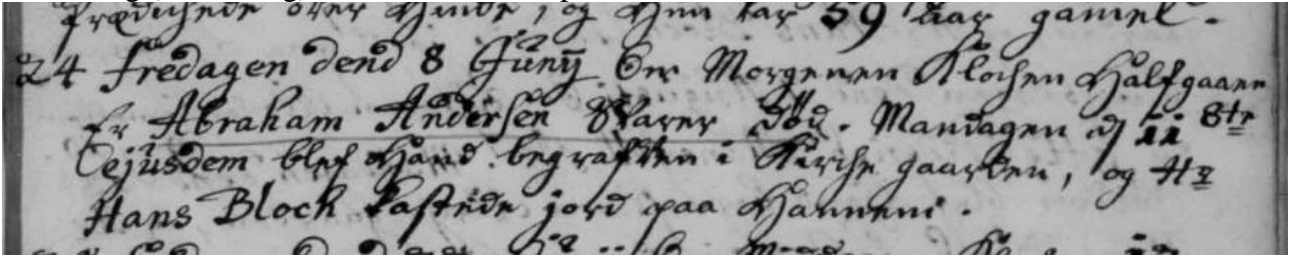 Prædichede over Hinde, og Hun var 59 Aar gamel.
24 Fredagen dend 8 Junÿ Om Morgenen Klochen Halfgaaen
Er Abraham Andersen Død. Mandagen d 11 8te
Ejusdem blef Hand begrafven i Kirche gaarden, og Hr
Hans Bloch kastede jord paa Hannem.